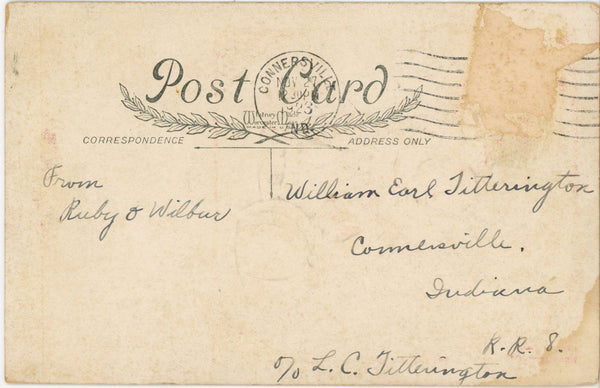 Post Card
CONNERSVILLE
NOV
IND.
Whitney Made
Worcester, Mass
CORRESPONDENCE
ADDRESS ONLY
From
Ruby & Wilbur
William Earl Titterington
Connersville,
Indiana
R.R. 8.
c/o L. C. Titterington